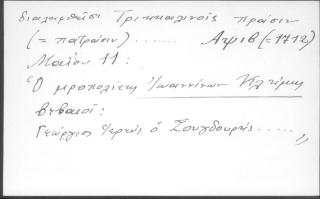 διαλειφθεῖσι Τρικκαλινοῖς πράσιν
(= πατράσιν) ....... Αψιβ (= 1712)
Μαΐου 11 :
Ὁ μροπολίτης Ἰωαννίνων Κλήμης
βεβαιοῖ :
Γεώργιος Ἱερεύς ὁ Σουγδουρῆς ..... "